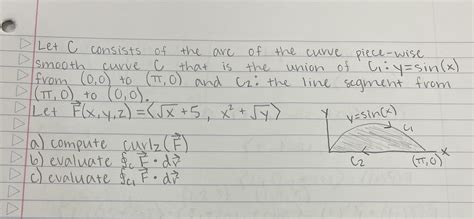 Let C consists of the arc of the curve piece-wise
smooth curve C that is the union of C₁: y=sin(x)
from (0,0) to (π,0) and C₂: the line segment from
(π,0) to (0,0).
Let F⃗(x,y,z) = ⟨√x +5, x² +√y⟩
a) compute curlz(F⃗)
b) evaluate ∮c F⃗ • dr⃗
c) evaluate ∮c₁ F⃗ • dr⃗
y
y=sin(x)
C₁
x
C₂
(π,0)